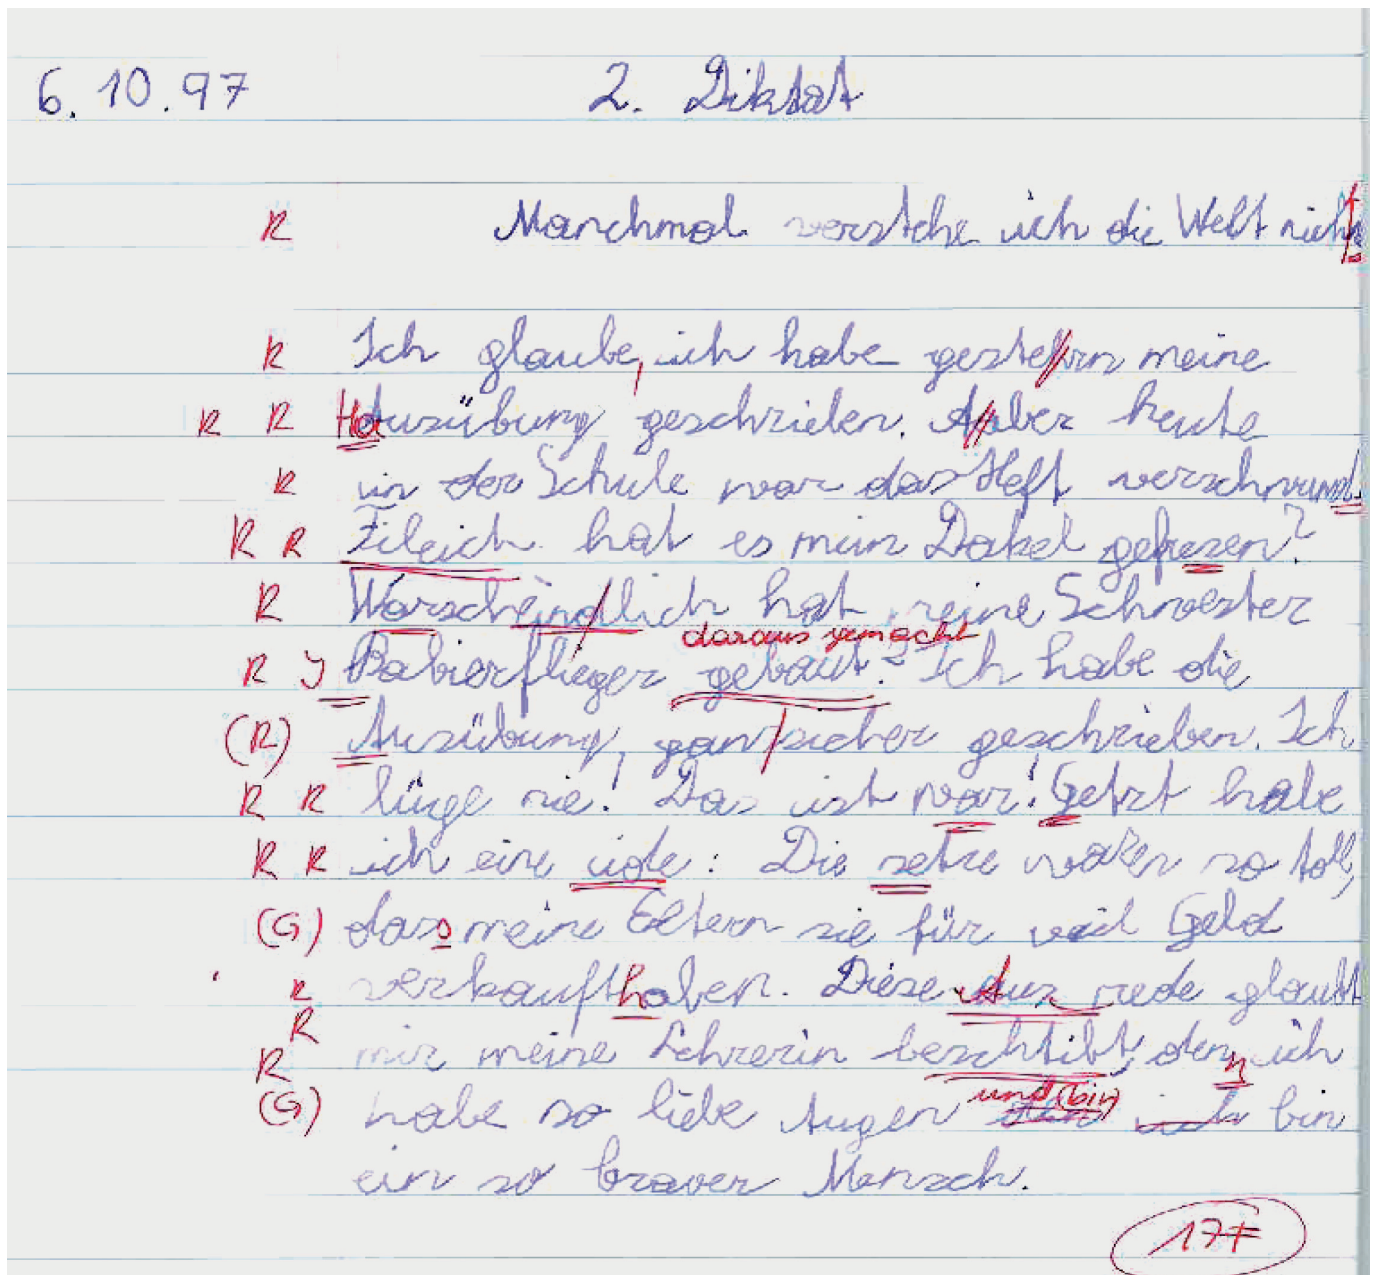 6.10.97 2. Diktat
R Manchmal verstehe ich die Welt nicht
R Ich glaube, ich habe gestern meine
R R Hausübung geschrieben. Aber heute
R in der Schule war das Heft verschwund.
R R Fileich hat es mein Dakel gefresen?
R Warscheindlich hat meine Schwester
daraus gemacht
R J Babierflieger gebaut? Ich habe die
(R) Ausübung, ganz sicher geschrieben. Ich
R R lüge nie! Das ist war! Getzt habe
R R ich eine iide: Die setze waren so toll,
(G) dass meine Eltern sie für veil Geld
R verkauft haben. Diese Aus rede glaubt
R
R mir meine Lehrerin beschtibt, denn ich
und (bin)
(G) habe so liebe Augen ich bin
ein so braver Mensch.
17F